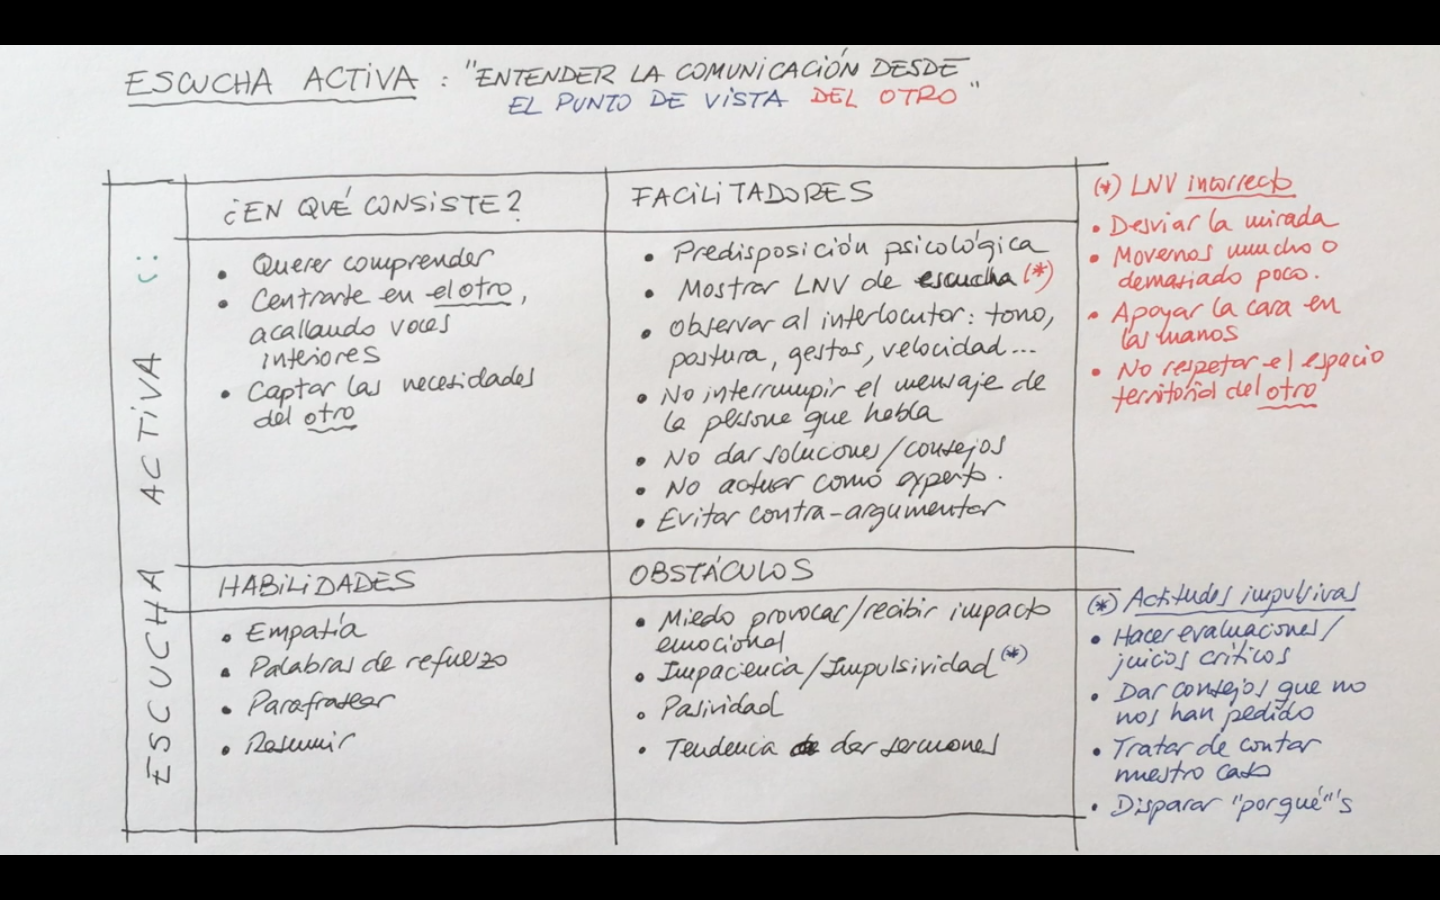 ESCUCHA ACTIVA : "ENTENDER LA COMUNICACIÓN DESDE
EL PUNTO DE VISTA DEL OTRO"
ESCUCHA ACTIVA c:
¿EN QUÉ CONSISTE?
• Querer comprender
• Centrarte en el otro,
acallando voces
interiores
• Captar las necesidades
del otro
FACILITADORES
• Predisposición psicológica
• Mostrar LNV de escucha (*)
• Observar al interlocutor: tono,
postura, gestos, velocidad...
• No interrumpir el mensaje de
la persona que habla
• No dar soluciones/consejos
• No actuar como experto.
• Evitar contra-argumentar
(*) LNV incorrecto
• Desviar la mirada
• Movernos mucho o
demasiado poco.
• Apoyar la cara en
las manos
• No respetar el espacio
territorial del otro
HABILIDADES
• Empatía
• Palabras de refuerzo
• Parafrasear
• Resumir
OBSTÁCULOS
• Miedo provocar/recibir impacto
emocional
• Impaciencia/Impulsividad (*)
• Pasividad
• Tendencia de dar sermones
(*) Actitudes impulsivas
• Hacer evaluaciones/
juicios críticos
• Dar consejos que no
nos han pedido
• Tratar de contar
nuestro caso
• Disparar "porqué"s